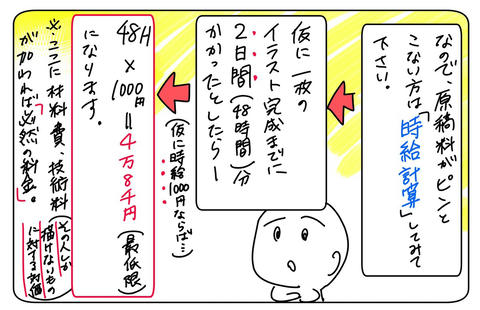 なので、原稿料がピンと
こない方は「時給計算」してみて
下さい。
仮に一枚の
イラスト完成までに
2日間(48時間)分
かかったとしたらー
(仮に時給1000円ならば…)
48H×1000円=4万8千円(最低限)
になります。
※ここに材料費、技術料(その人しか描けないものに対する対価)
が加われば必然の料金」。